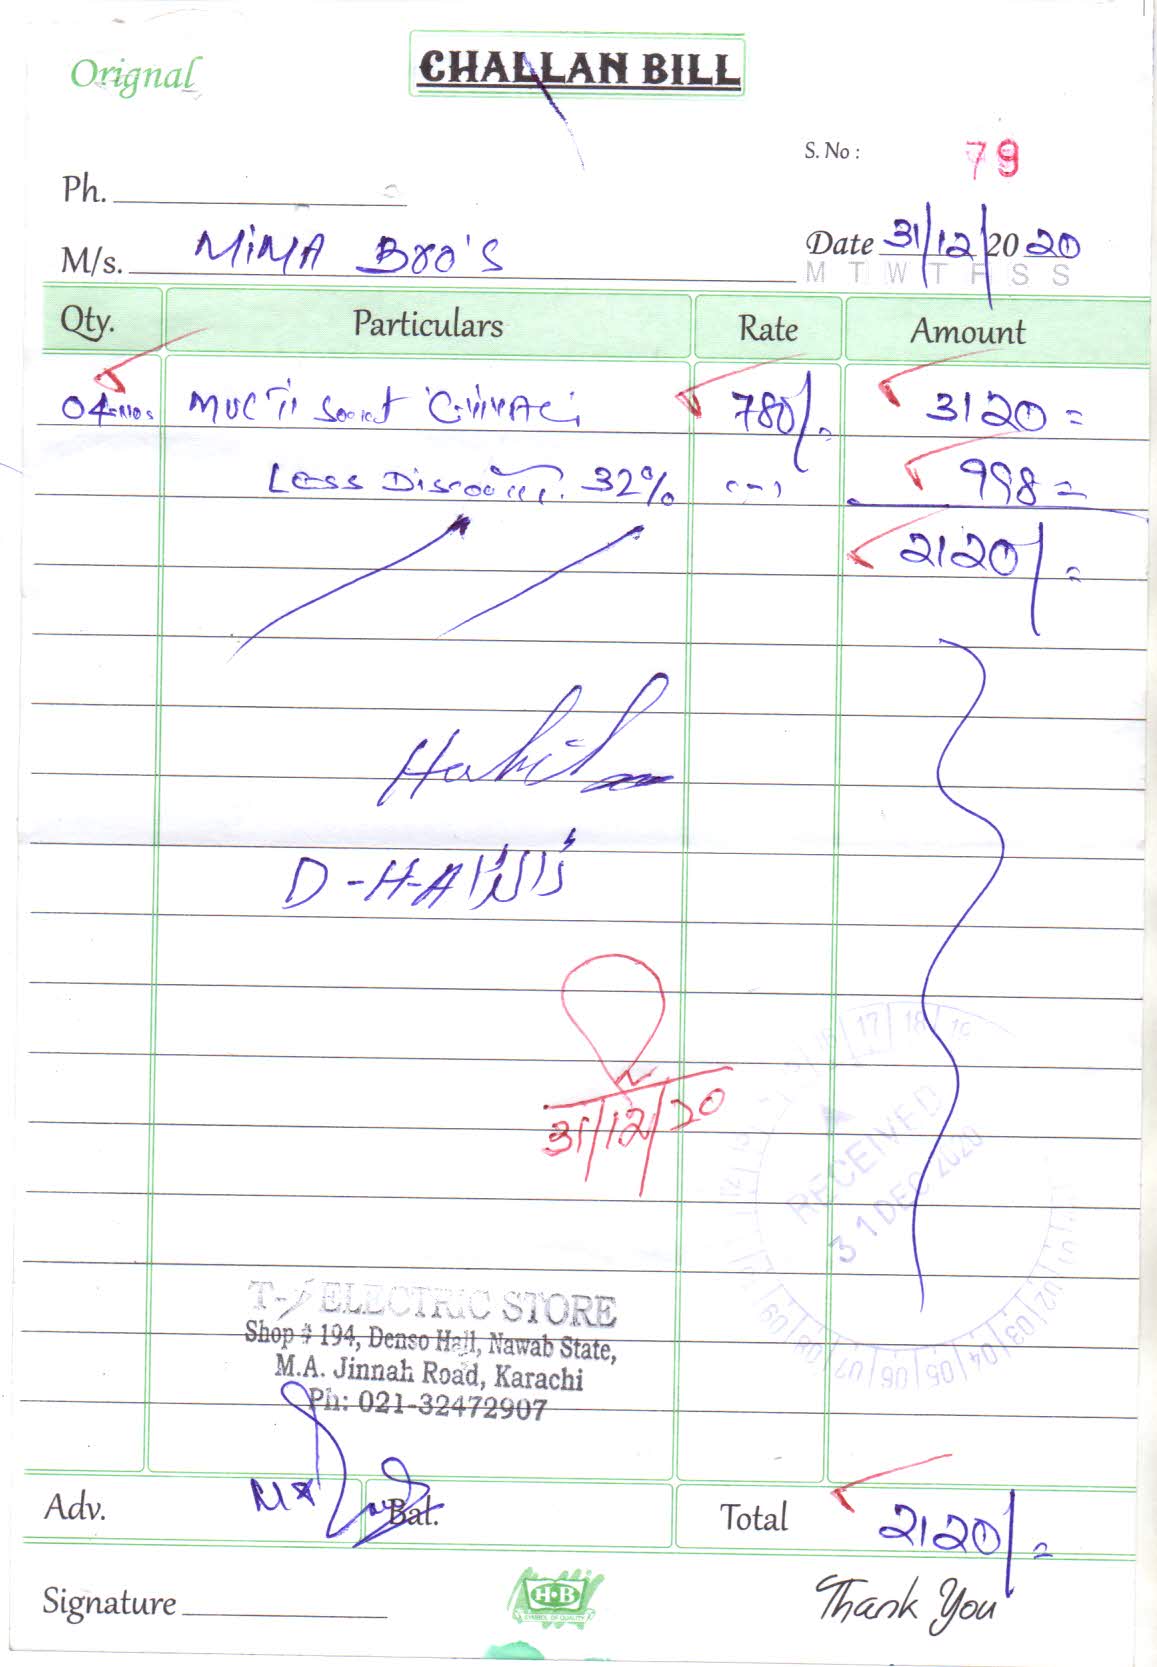 Orignal
CHALLAN BILL
S. No : 79
Ph.
M/s. MiMA Bro's
Date 31/12/2020
M T W T F S S
Qty. Particulars Rate Amount
04 780/= 3120=
Less Discount 32% (-) 998=
2120/=
31/12/20
17 18 19
RECEIVED
31 DEC 2020
02 03 04 05 06 07 08 09
ELECTRIC STORE
Shop # 194, Denso Hall, Nawab State,
M.A. Jinnah Road, Karachi
Ph: 021-32472907
Adv. Bal. Total 2120/=
Signature
H·B
SYMBOL OF QUALITY
Thank You